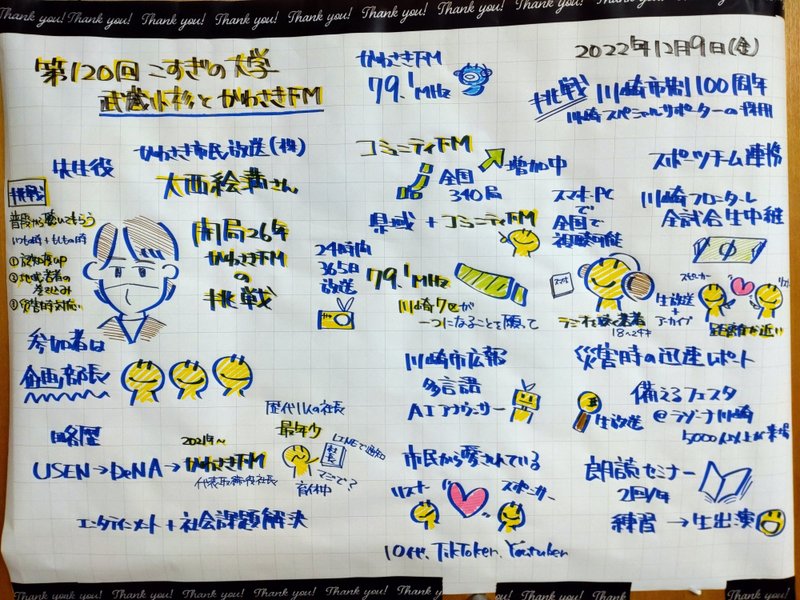 Thank you! Thank you! Thank you! Thank you! Thank you! Thank you! Thank you! Thank you!
第120回 こすぎの大学
武蔵小杉とかわさきFM
先生役
かわさき市民放送(株)
大西絵満さん
挑戦
普段から聴いてもらう
いつもの時+もしもの時
①認知度up
②地域若者の
巻き込み
③災害時対応
開局26年
かわさきFM
の
挑戦
参加者は
企画部長
略歴
USEN→DeNA→
2021年~
かわさきFM
代表取締役社長
歴代11人の社長
最年少
LINEで通知
社長
育休中
マジで?
エンタテインメント+社会課題解決
かわさきFM
79.1MHz
コミュニティFM
全国
340局
増加中
県域+コミュニティFM
24時間
365日
放送
79.1MHz
川崎7区が
一つになることを願って
川崎市広報
多言語
AIアナウンサー
市民から愛されている
リスナー
スポンサー
10代、TikToker、Youtuber
スマホ・PC
で
全国で
視聴可能
ラジオを聴く若者
18~24才
2022年12月9日(金)
挑戦
川崎市制100周年
川崎スペシャルサポーターの採用
スポーツチーム連携
川崎フロンターレ
全試合生中継
生放送
+
アーカイブ
スピーカー
リスナー
距離が近い
災害時の迅速レポート
生放送
備えるフェスタ
@ラゾーナ川崎
5000人以上が来場
朗読セミナー
2回/年
練習→生出演
Thank you! Thank you! Thank you! Thank you! Thank you! Thank you! Thank you!